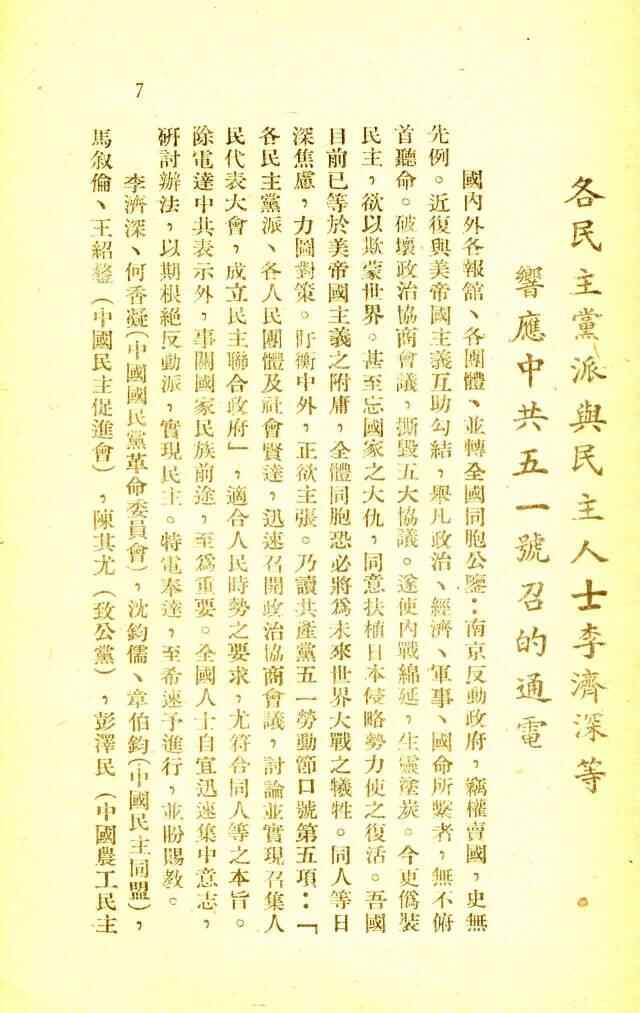 各民主黨派與民主人士李濟深等
響應中共五一號召的通電
國內外各報舘、各團體、並轉全國同胞公鑒：南京反動政府，竊權賣國，史無
先例。近復與美帝國主義互助勾結，舉凡政治、經濟、軍事、國命所繫者，無不俯
首聽命。破壞政治協商會議，撕毀五大協議。遂使內戰綿延，生靈塗炭。今更僞裝
民主，欲以欺蒙世界。甚至忘國家之大仇，同意扶植日本侵略勢力使之復活。吾國
目前已等於美帝國主義之附庸，全體同胞恐必將爲未來世界大戰之犧牲。同人等日
深焦慮，力圖對策。盱衡中外，正欲主張。乃讀共產黨五一勞動節口號第五項：「
各民主黨派、各人民團體及社會賢達，迅速召開政治協商會議，討論並實現召集人
民代表大會，成立民主聯合政府」，適合人民時勢之要求，尤符合同人等之本旨。
除電達中共表示外，事關國家民族前途，至爲重要。全國人士自宜迅速集中意志，
研討辦法，以期根絕反動派，實現民主。特電奉達，至希速予進行，並盼賜教。
李濟深、何香凝（中國國民黨革命委員會），沈鈞儒、章伯鈞（中國民主同盟），
馬敘倫、王紹鏊（中國民主促進會），陳其尤（致公黨），彭澤民（中國農工民主
7